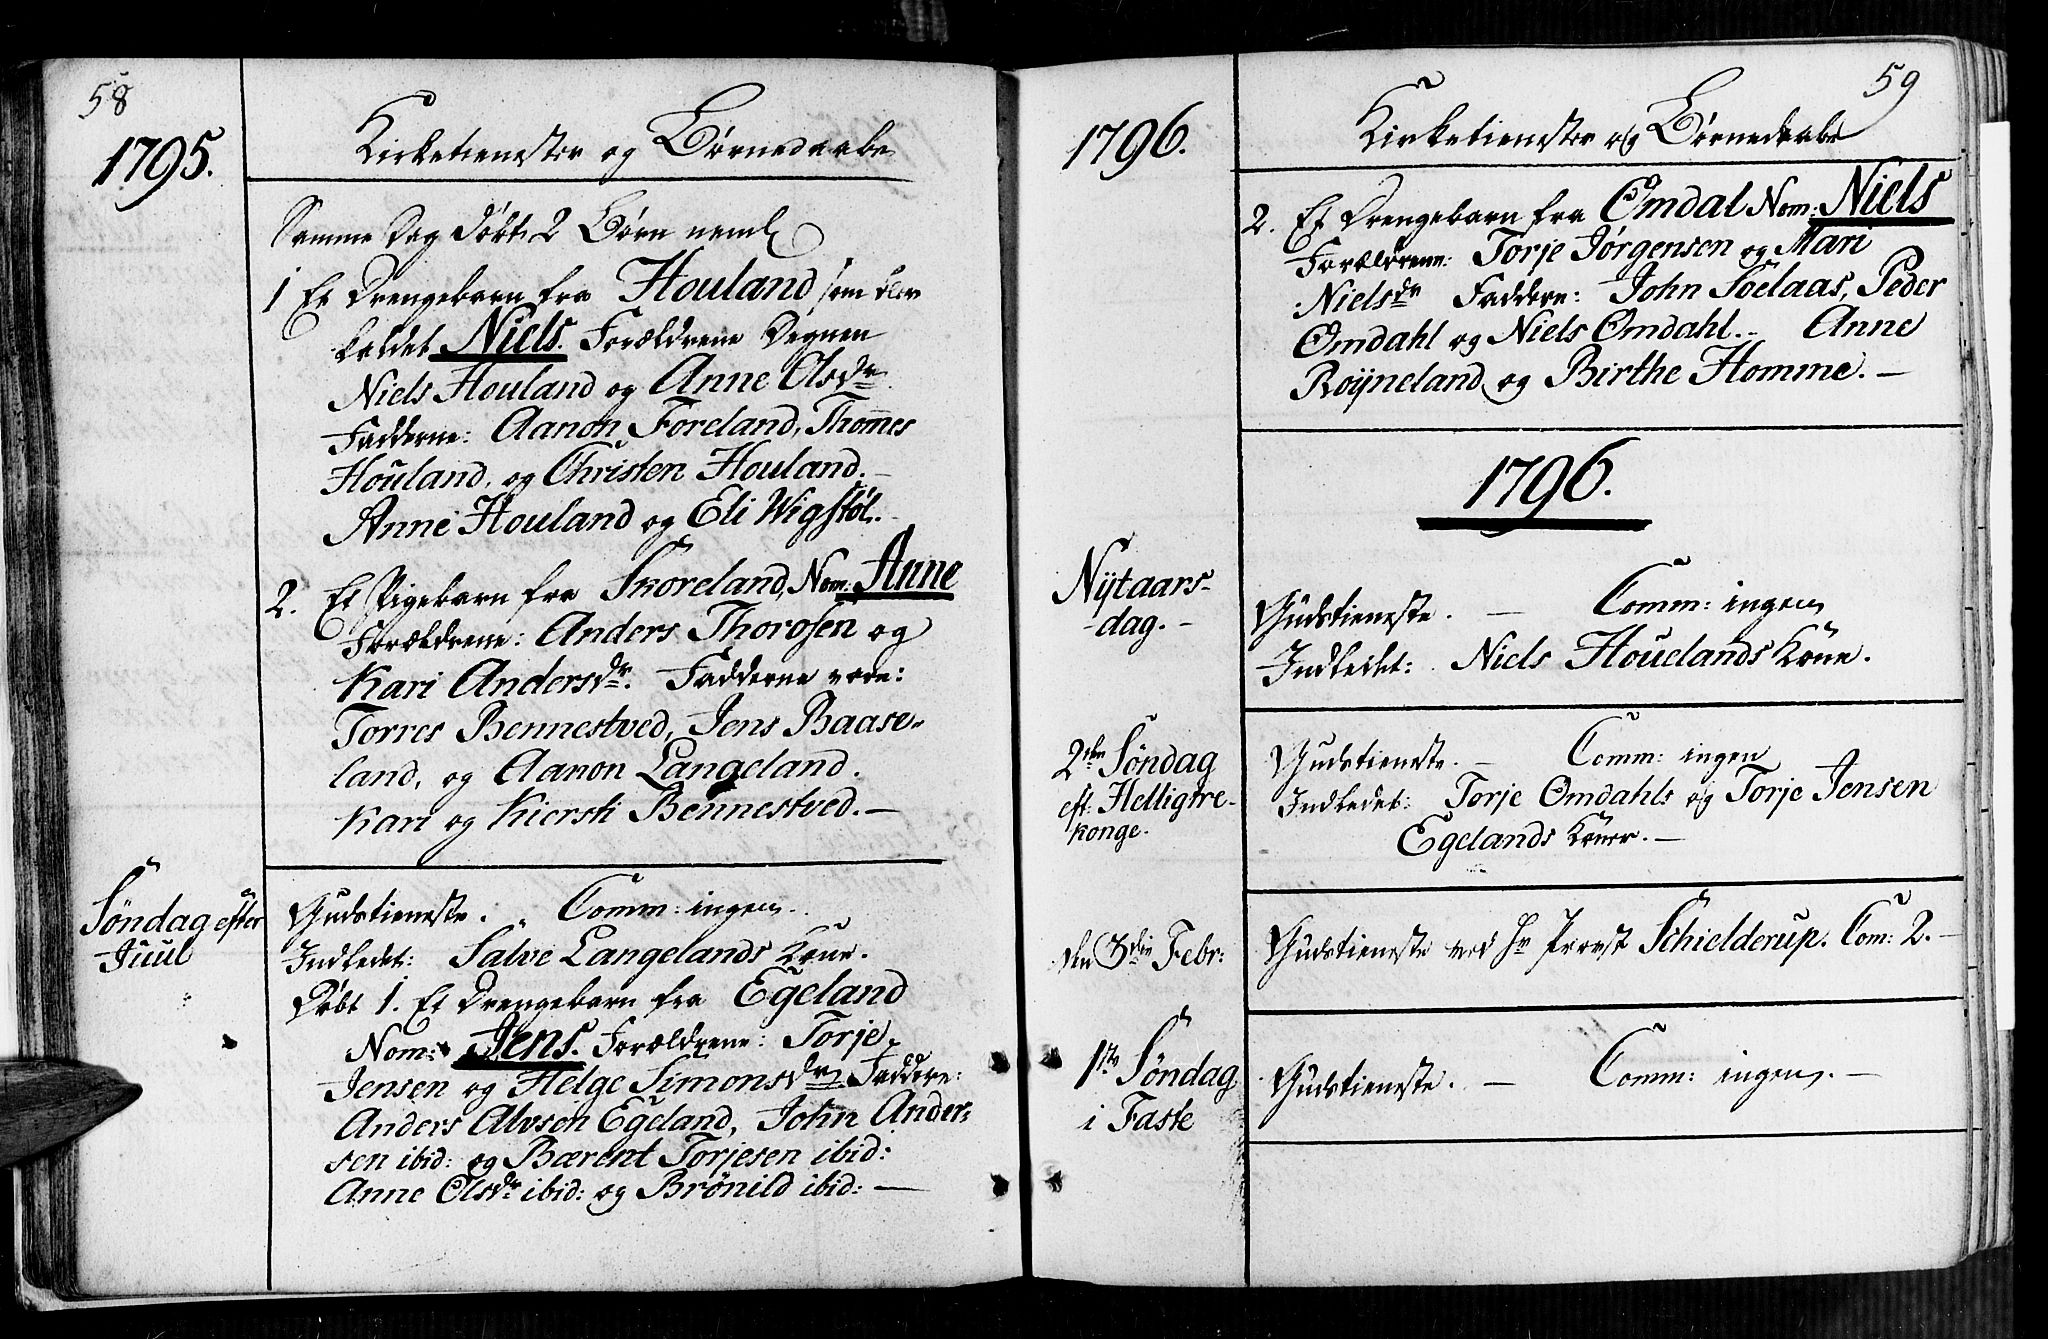 58
1795.
Kirketienester og Børnedaabe
Samme Dag døbt 2 Børn neml
1 Et Drengebarn fra Houland, som blev
kaldet Niels. Forældrene Degnen
Niels Houland og Anne Olsdr.
Fadderne: Aanon Foreland, Thommes
Houland, og Christen Houland.-
Anne Houland og Eli Wigstøl.-
2. Et Pigebarn fra Skoreland, Nom: Anne
Forældrene: Anders Thorosen og
Kari Andersdr. Fadderne vare:
Torres Bennestved, Jens Baase-
land, og Aanon Langeland.
Kari og Kiersti Bennestved.-
Søndag efter
Juul
Gudstieneste. Comm: ingen.
Indledet: Salve Langelands Kone.
Døbt 1. Et Drengebarn fra Egeland
Nom: Jens. Forældrene: Torje
Jensen og Helge Simonsdr Faddere:
Anders Alvsen Egeland, John Ander-
sen ibid: og Bærent Torjesen ibid:
Anne Olsdr ibid: og Brønild ibid: -
59
1796.
Kirketienester og Børnedaabe
2. Et Drengebarn fra Omdal Nom: Niels
Forældrene: Torje Jørgensen og Mari
Nielsdr Faddere: John Soelaas, Peder
Omdahl og Niels Omdahl.- Anne
Røijneland og Birthe Homme.-
1796.
Nijtaars-
-dag.-
Gudstieneste. - Comm: ingen
Indledet: Niels Houelands Kone.
2den Søndag
eft: Helligtre-
konge.
Gudstieneste. - Comm: ingen
Indledet: Torje Omdahls og Torje Jensen
Egelands Koner.-
den 3die Febr:
Gudstieneste ved Hr Provst Schielderup. Com: 2.-
1ste Søndag
i Faste
Gudstieneste. - Comm: ingen. -